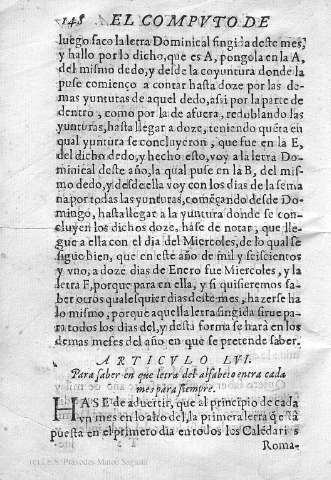 148 EL COMPVTO DE
luego saco la letra Dominical fingida deste mes,
y hallo por lo dicho, que es A, pongola en la A,
del mismo dedo, y desde la coyuntura donde la
puse comienço a contar hasta doze por las de-
mas yunturas de aquel dedo, assi por la parte de
dentro, como por la de afuera, redoblando las
yunturas, hasta llegar a doze, teniendo quēta en
qual yuntura se concluyeron, que fue en la E,
del dicho dedo, y hecho esto, voy a la letra Do-
minical deste año, la qual puse en la B, del mis-
mo dedo, y desde ella voy con los dias de la sema
na por todas las yunturas, comēçando desde Do-
mingo, hasta llegar a la yuntura donde se con-
cluyen los dichos doze, hase de notar, que lle-
gue a ella con el dia del Miercoles, de lo qual se
sigue bien, que en este año de mil y seiscientos
y vno, a doze dias de Enero fue Miercoles, y la
letra E, porque para en ella, y si quisieremos sa-
ber otros qualesquier dias deste mes, hazerse ha
lo mismo, porque aquella letra fingida sirue pa-
ra todos los dias del, y desta forma se hará en los
demas meses del año en que se pretende saber.
ARTICVLO LVI.
Para saber en que letra del alfabeto entra cada
mes para siempre.
HASE de aduertir, que al principio de cada
vn mes en lo alto del, la primera letra q̄ está
puesta en el primero dia en todos los Calēdarios
Roma-
(c) I.E.S. Práxedes Mateo Sagasta